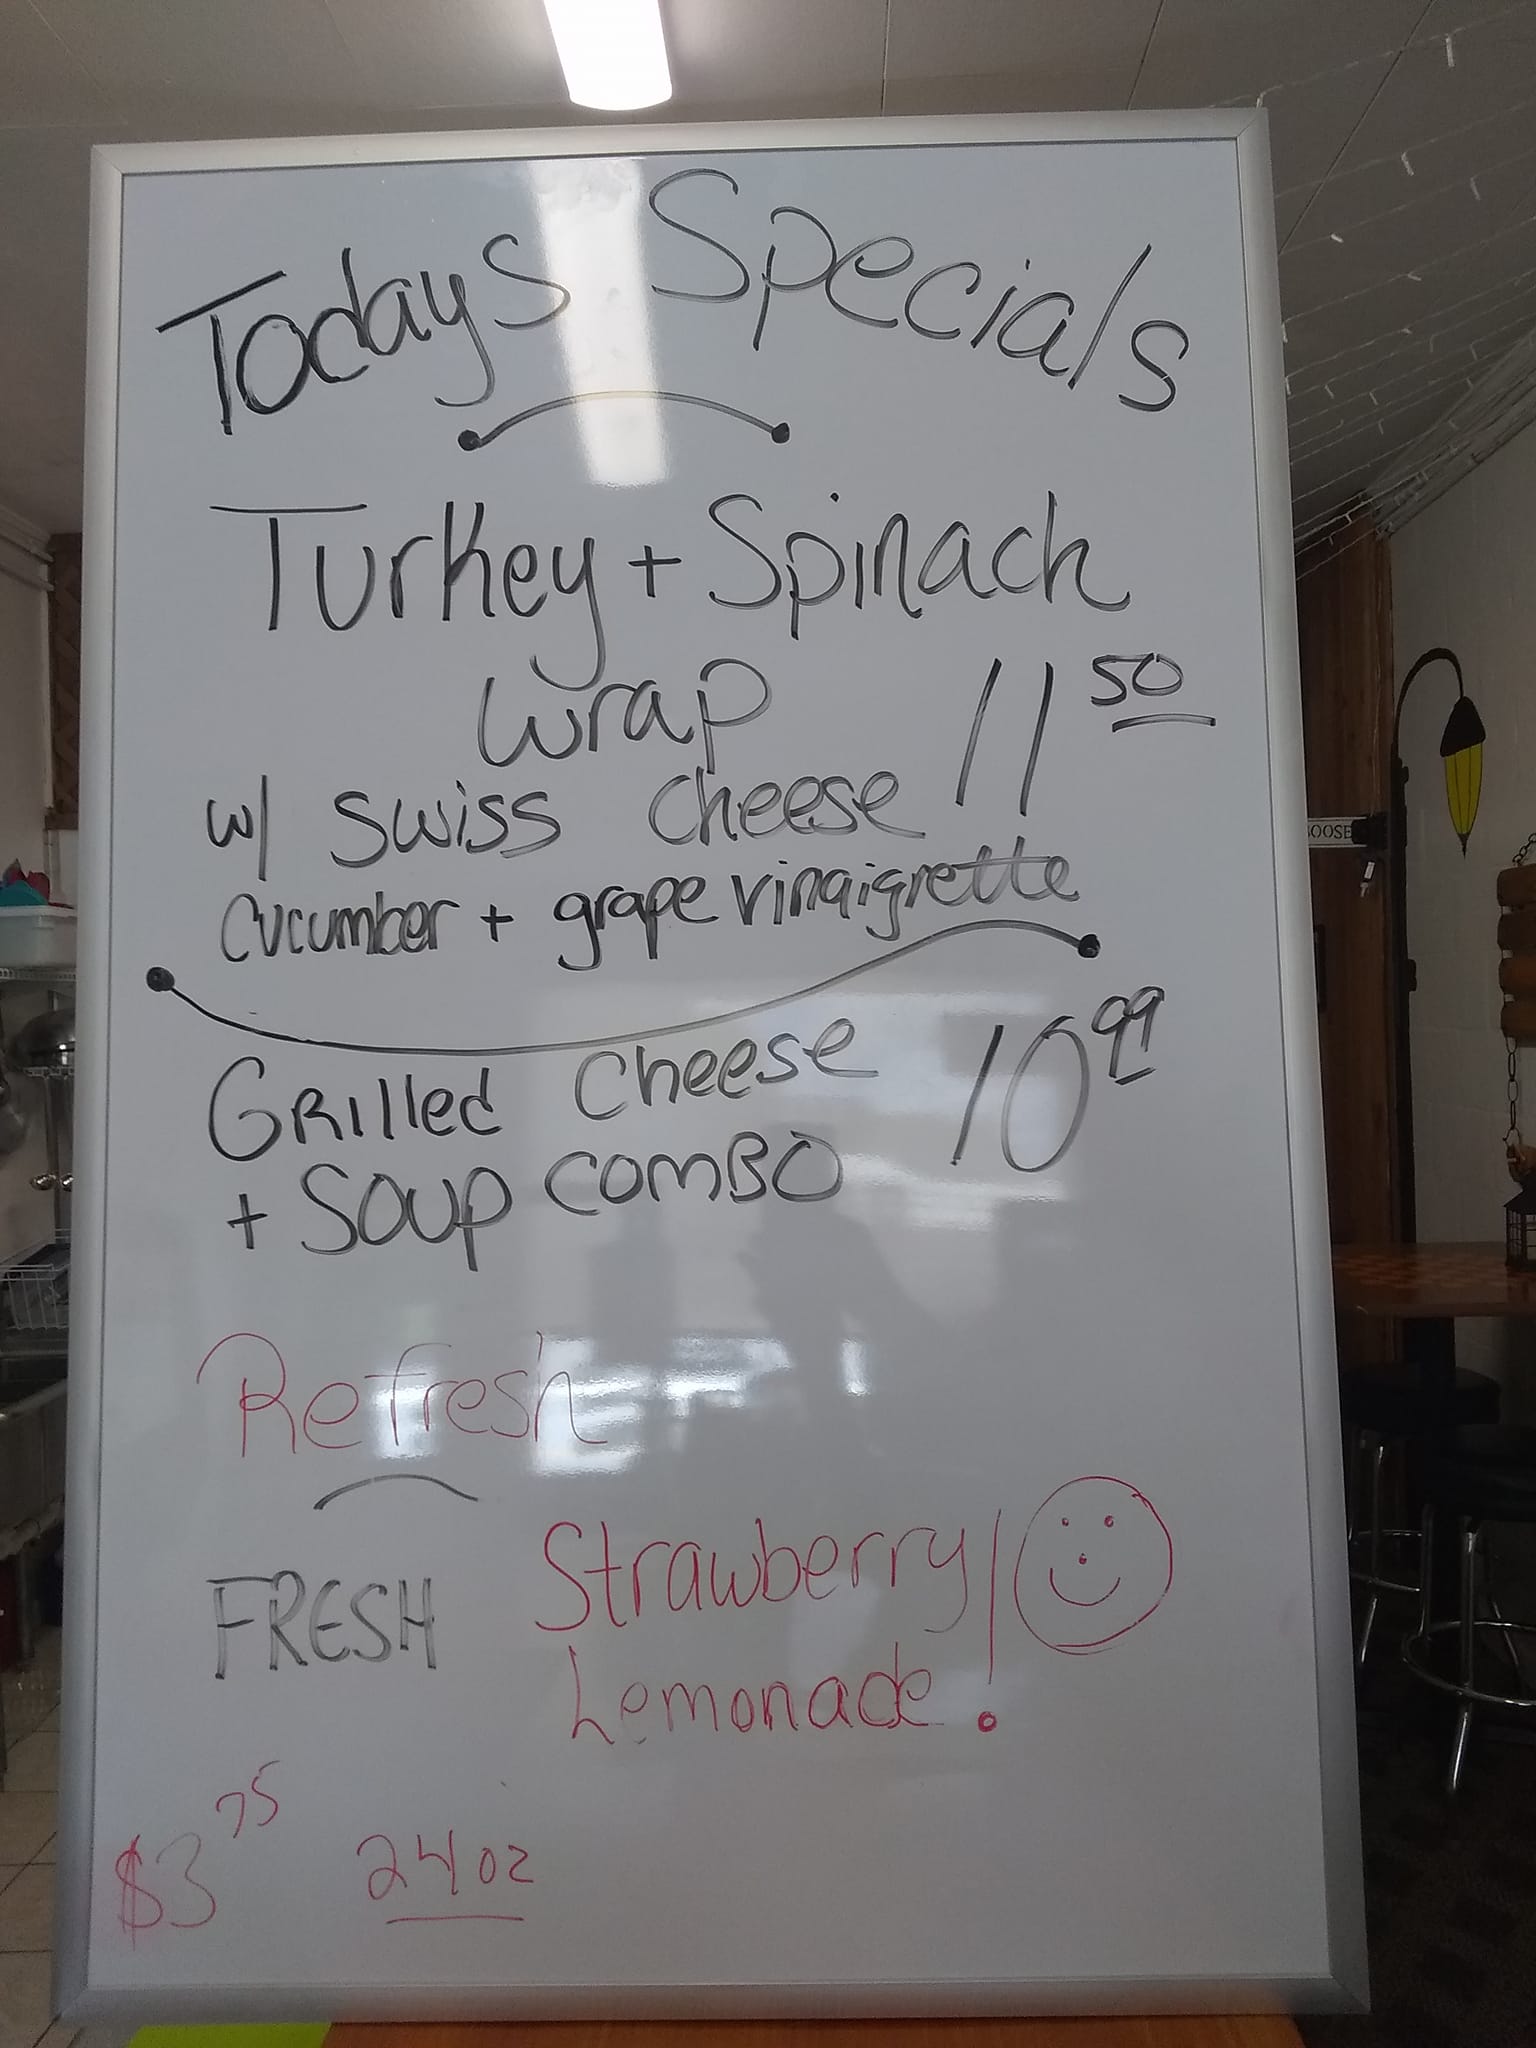 Todays Specials
Turkey + Spinach
Wrap 11 50
w/ Swiss Cheese
Cucumber + grape vinaigrette
Grilled Cheese 10 99
+ Soup COMBO
Refresh
FRESH Strawberry
Lemonade!
$3 75 24 oz
OOSE